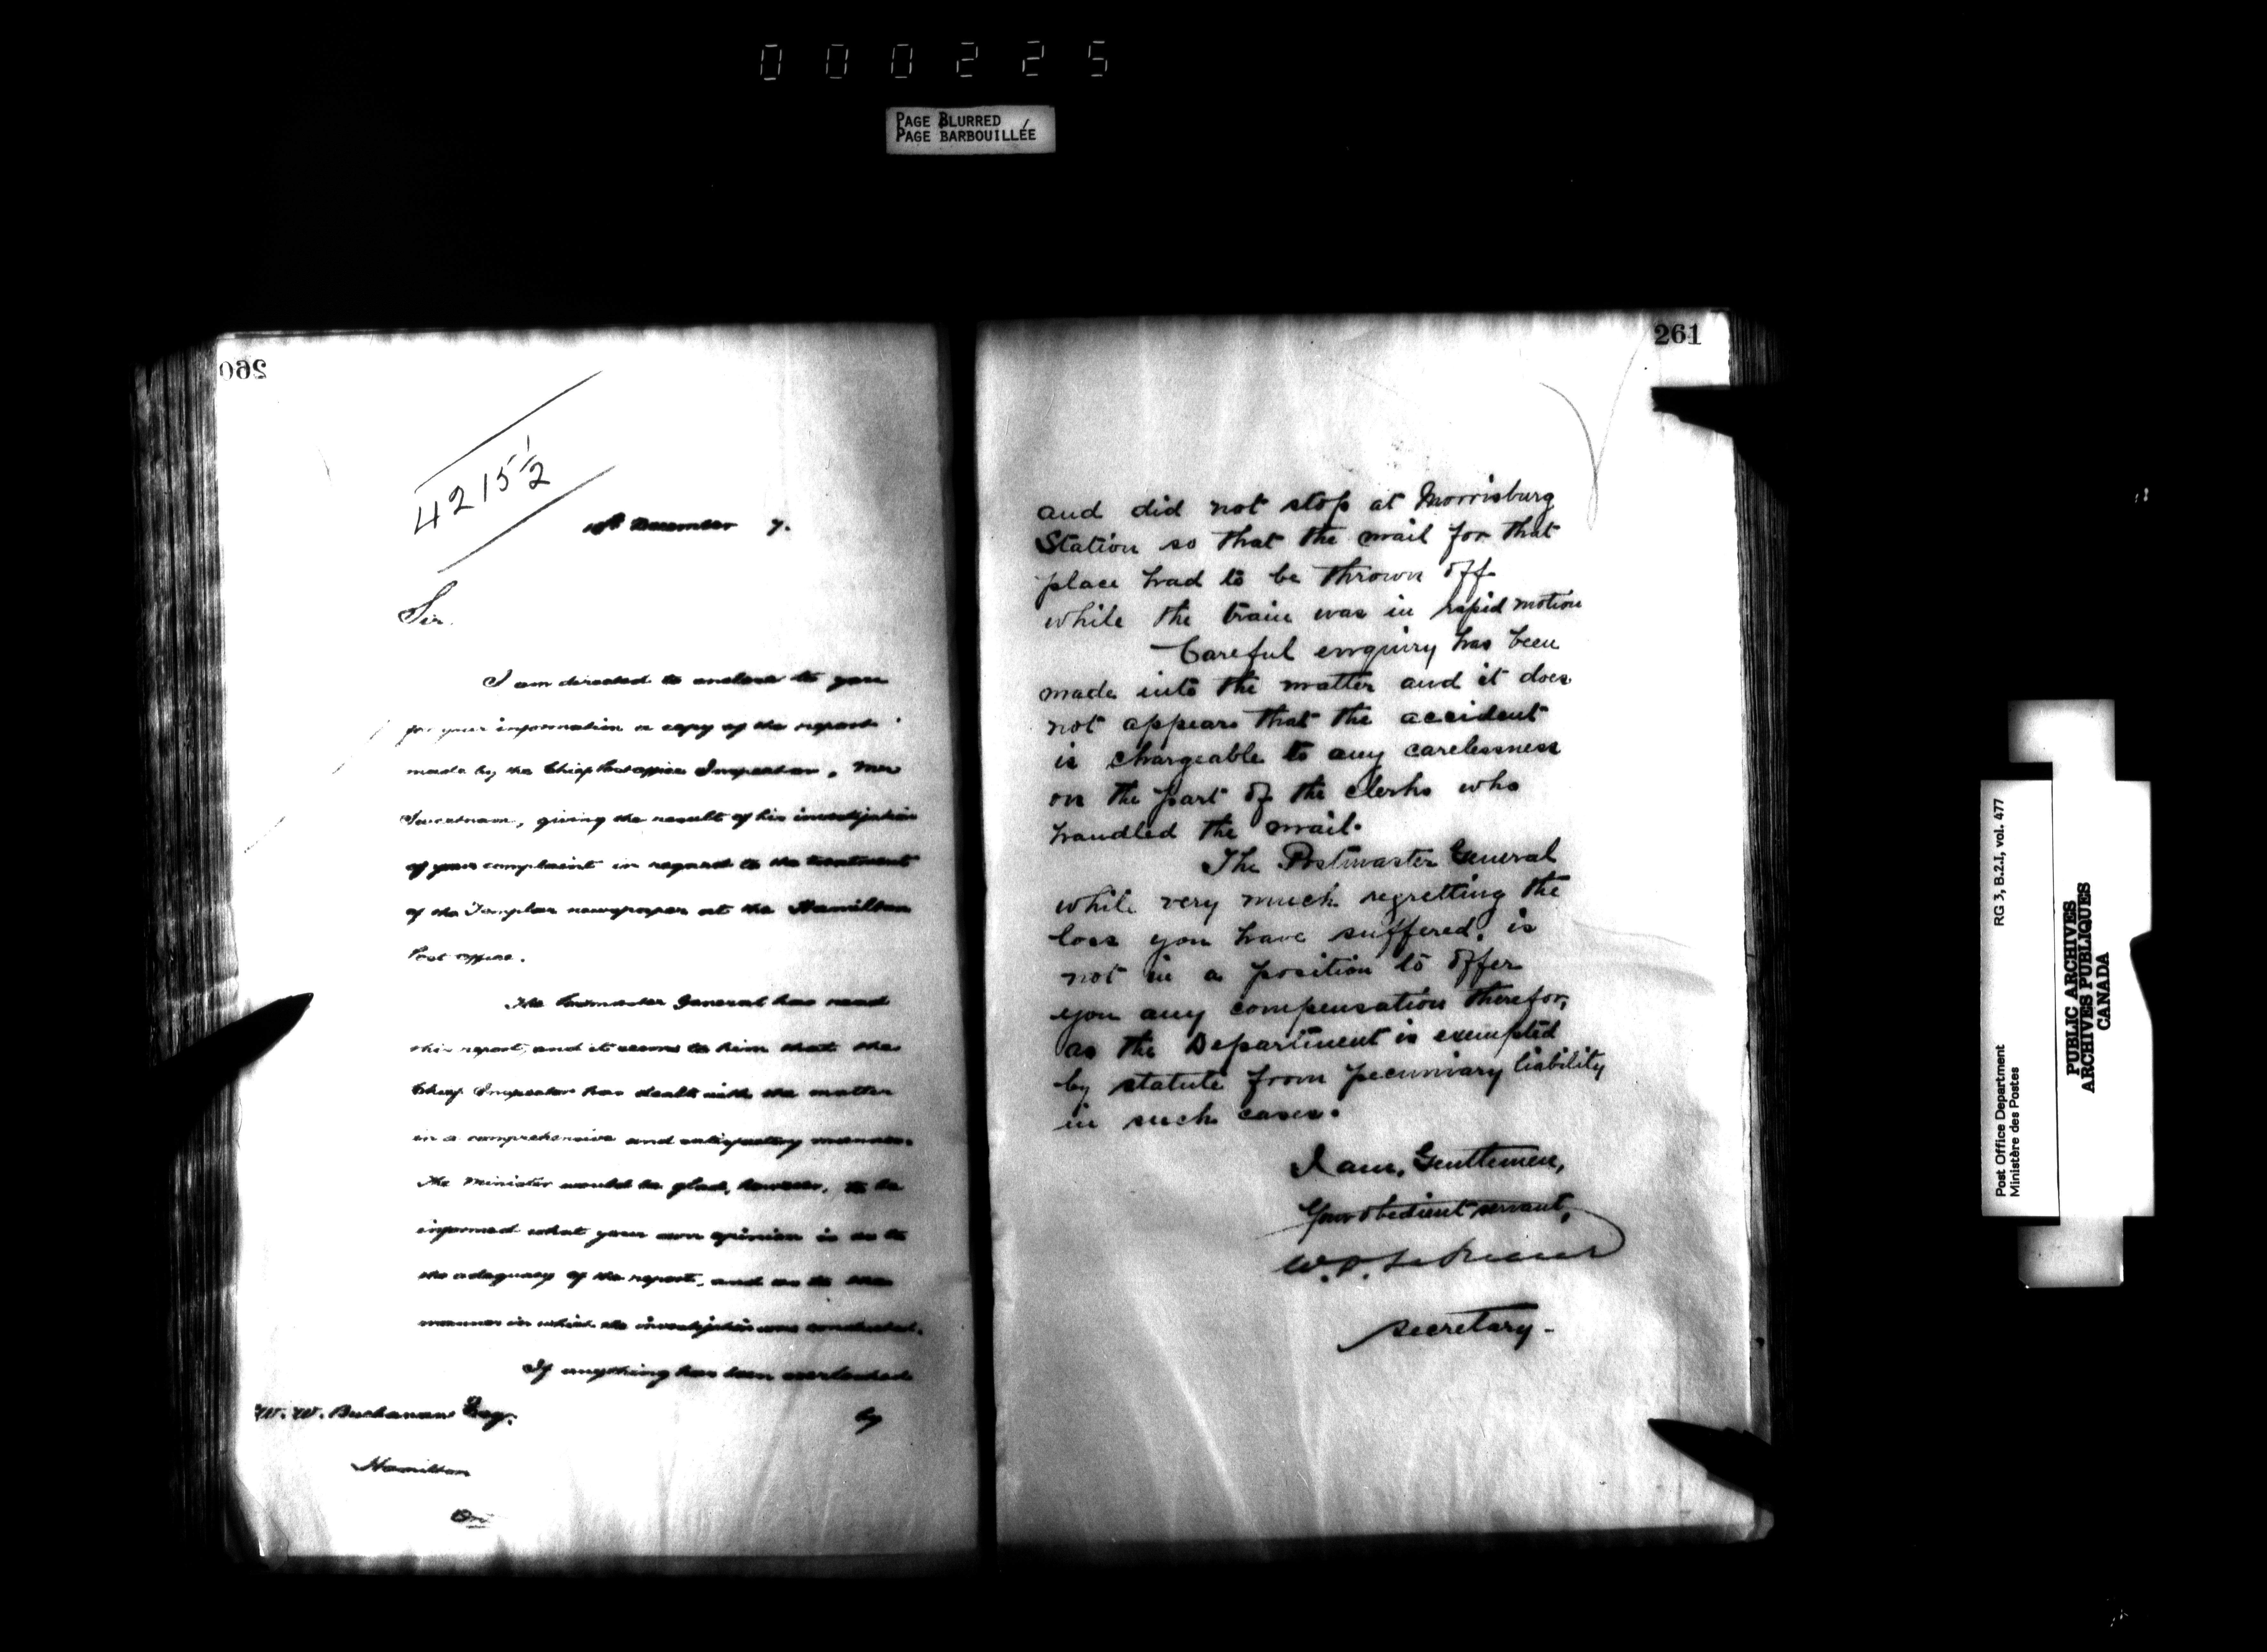 000225
PAGE BLURRED
PAGE BARBOUILLÉE
260
4215½
December 7.
Sir.
I am directed to enclose to you
for your information a copy of the report
made by the Chief Post office Inspector, Mr
Sweetnam, giving the result of his investigation
of your complaint in regard to the treatment
of the Templar newspaper at the Hamilton
Post office.
The Postmaster General has read
this report, and it seems to him that the
Chief Inspector has dealt with the matter
in a comprehensive and satisfactory manner.
The Minister would be glad, however, to be
informed what your own opinion is as to
the adequacy of the report, and as to the
manner in which the investigation was conducted.
If anything has been overlooked
by
W. W. Buchanan Esq.
Hamilton
261
and did not stop at Morrisburg
Station so that the mail for that
place had to be thrown off
while the train was in rapid motion
Careful enquiry has been
made into the matter and it does
not appear that the accident
is chargeable to any carelessness
on the part of the clerks who
handled the mail.
The Postmaster General
while very much regretting the
loss you have suffered, is
not in a position to offer
you any compensation therefor,
as the Department is exempted
by statute from pecuniary liability
in such cases.
I am, Gentlemen,
Your obedient servant,
W.
Secretary.
RG 3, B.2.I, vol. 477
Post Office Department
Ministère des Postes
PUBLIC ARCHIVES
ARCHIVES PUBLIQUES
CANADA